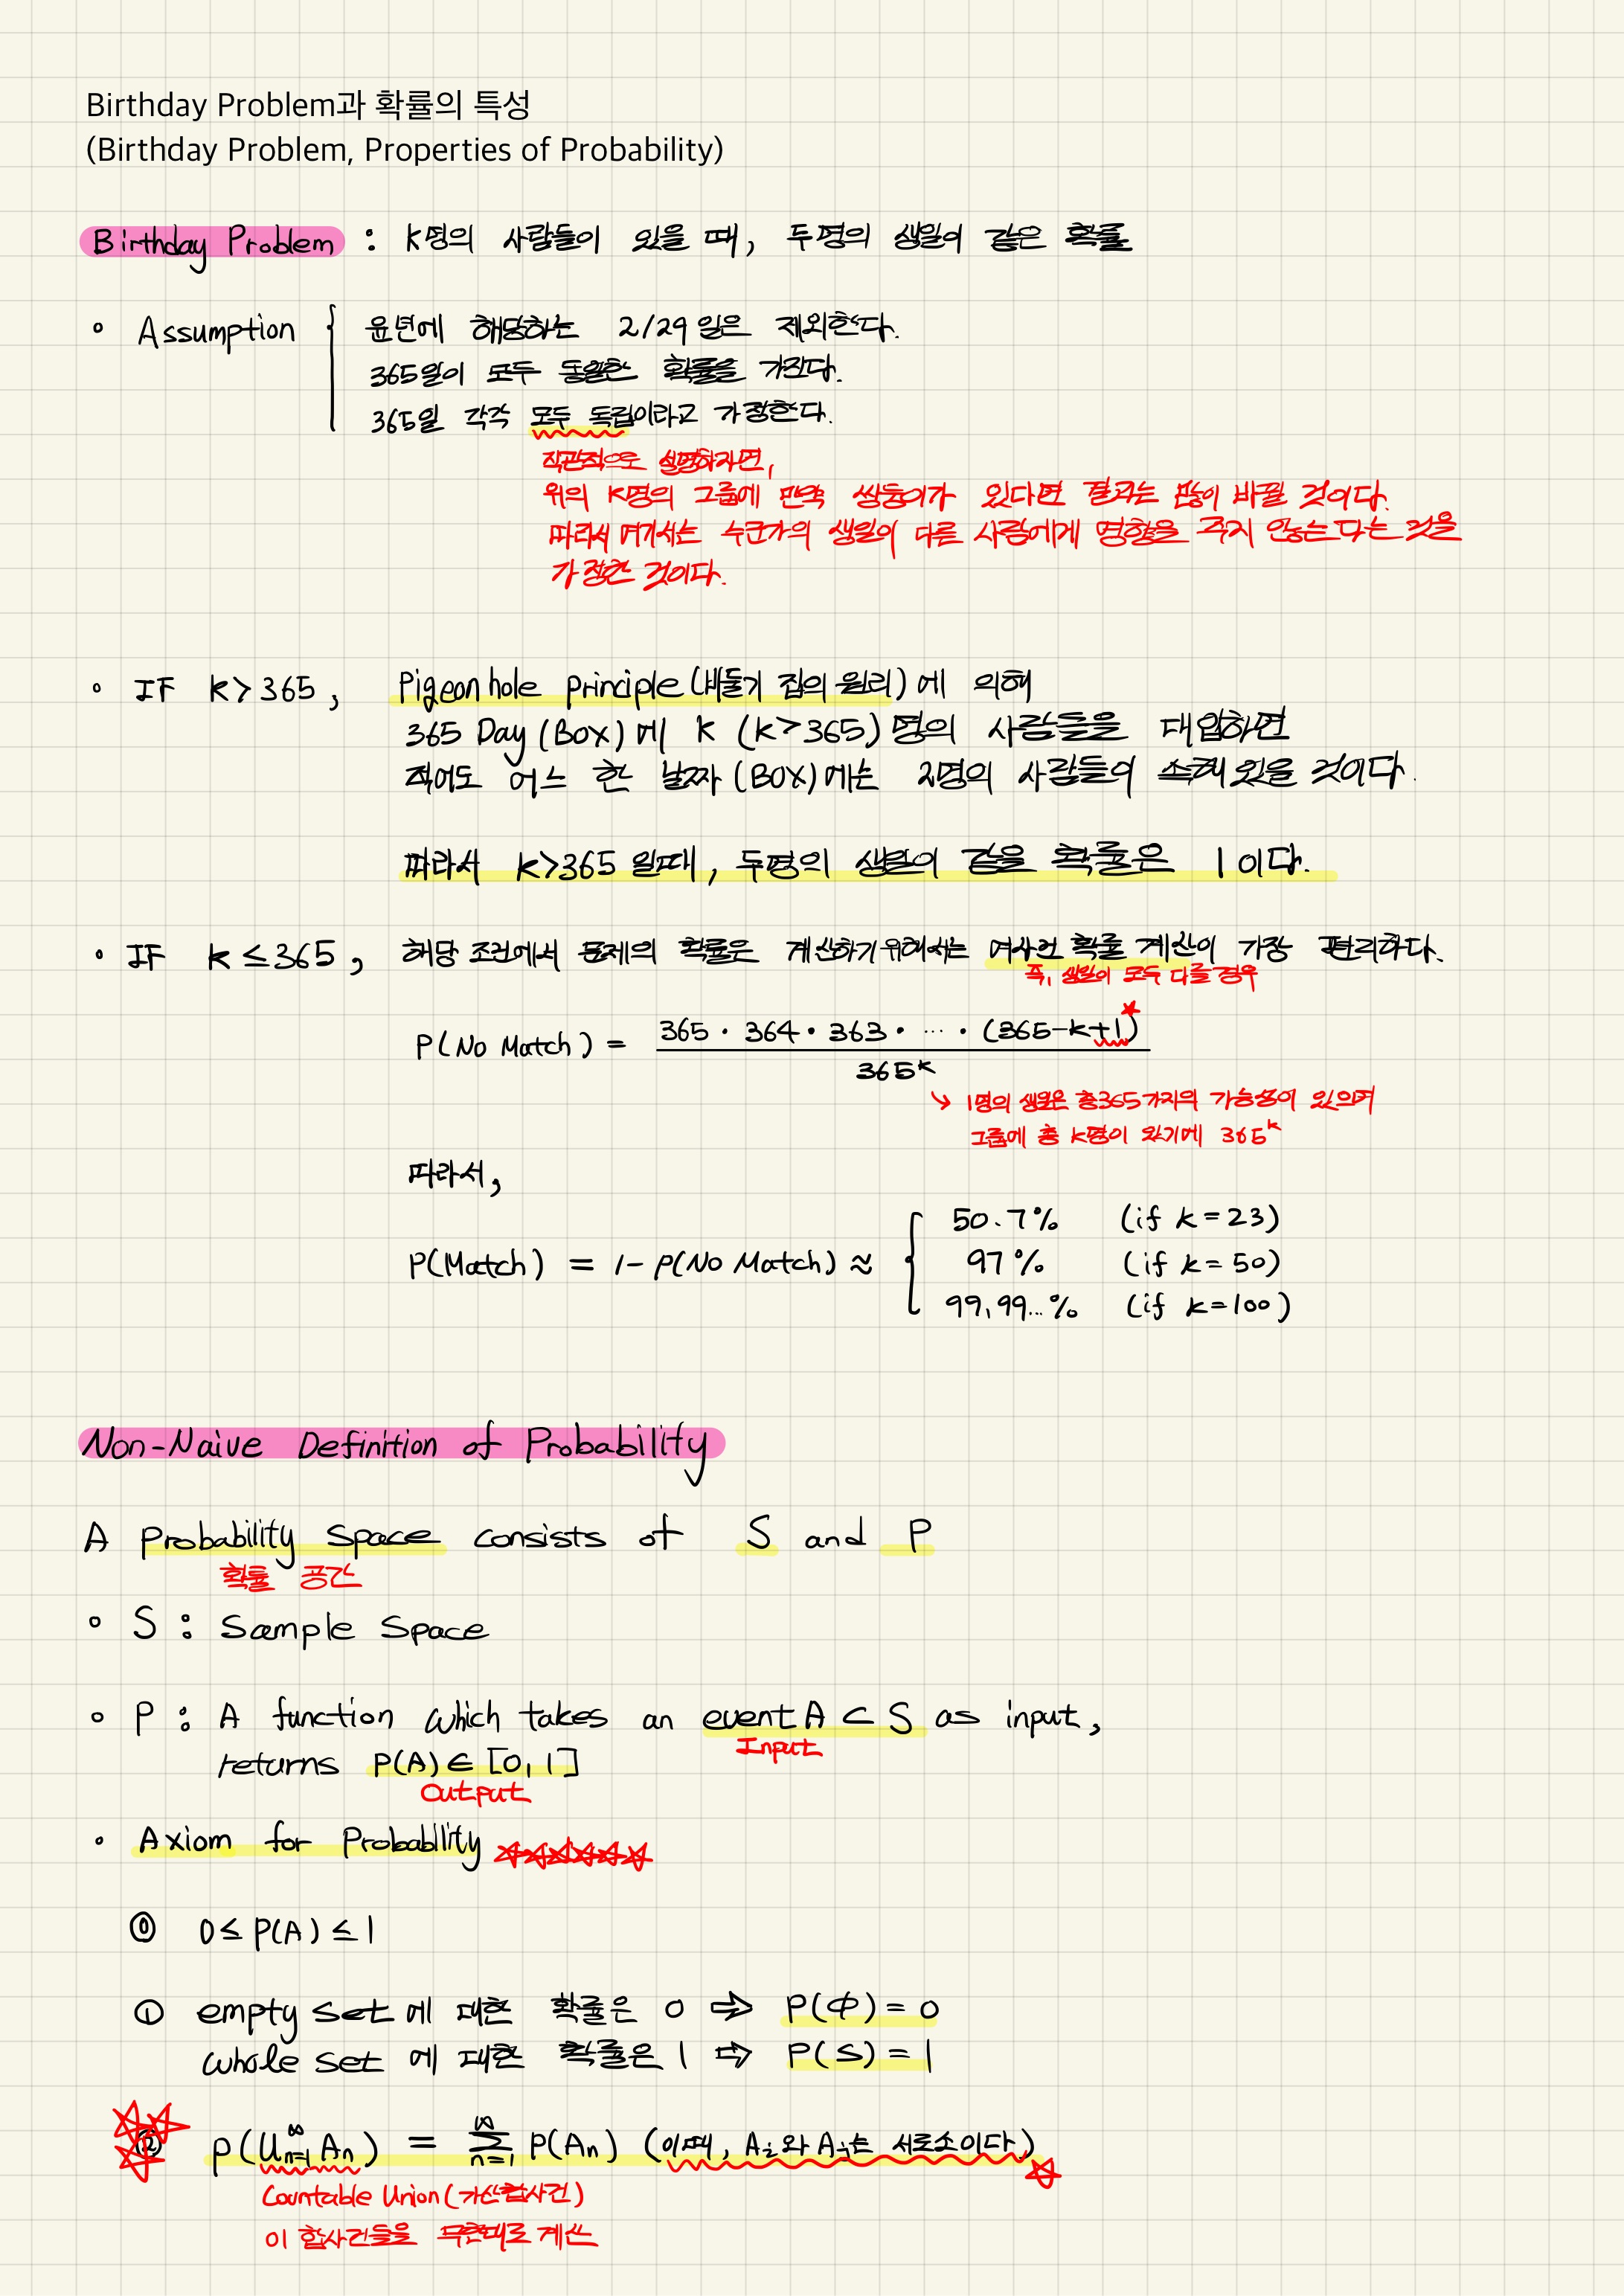 Birthday Problem과 확률의 특성
(Birthday Problem, Properties of Probability)
Birthday Problem : K명의 사람들이 있을 때, 두명의 생일이 같은 확률
• Assumption { 윤년에 해당하는 2/29일은 제외한다.
365일이 모두 동일한 확률을 가진다.
365일 각각 모두 독립이라고 가정한다.
직관적으로 설명하자면,
위의 K명의 그룹에 만약 쌍둥이가 있다면 결과는 많이 바뀔 것이다.
따라서 여기서는 누군가의 생일이 다른 사람에게 영향을 주지 않는다는 것을
가정한 것이다.
• IF K>365, Pigeonhole principle(비둘기 집의 원리)에 의해
365 Day(Box)에 K (K>365)명의 사람들을 대입하면
적어도 어느 한 날짜(BOX)에는 2명의 사람들이 속해있을 것이다.
따라서 K>365일때, 두명의 생일이 같을 확률은 1이다.
• IF K≤365, 해당 조건에서 문제의 확률은 계산하기위해서는 여사건 확률 계산이 가장 편리하다.
즉, 생일이 모두 다를경우
P(No Match) = 365 · 364 · 363 · ... · (365-k+1)
365^k
↘ 1명의 생일은 총365가지의 가능성이 있으며
그룹에 총 K명이 있기에 365^k
따라서,
P(Match) = 1-P(No Match) ≈ { 50.7% (if k=23)
97% (if k=50)
99.99...% (if k=100)
Non-Naive Definition of Probability
A Probability Space consists of S and P
확률 공간
• S : Sample Space
• P : A function which takes an event A ⊂ S as input,
Input
returns P(A) ∈ [0, 1]
Output
• Axiom for Probability ☆☆☆☆☆☆
⓪ 0≤P(A)≤1
① empty set에 대한 확률은 0 ⇒ P(∅)=0
whole set에 대한 확률은 1 ⇒ P(S)=1
② P(∪_{n=1}^∞ A_n) = Σ_{n=1}^∞ P(A_n) (이때, A_i와 A_j는 서로소이다)
Countable Union(가산합사건)
이 합사건들을 무한대로 계산